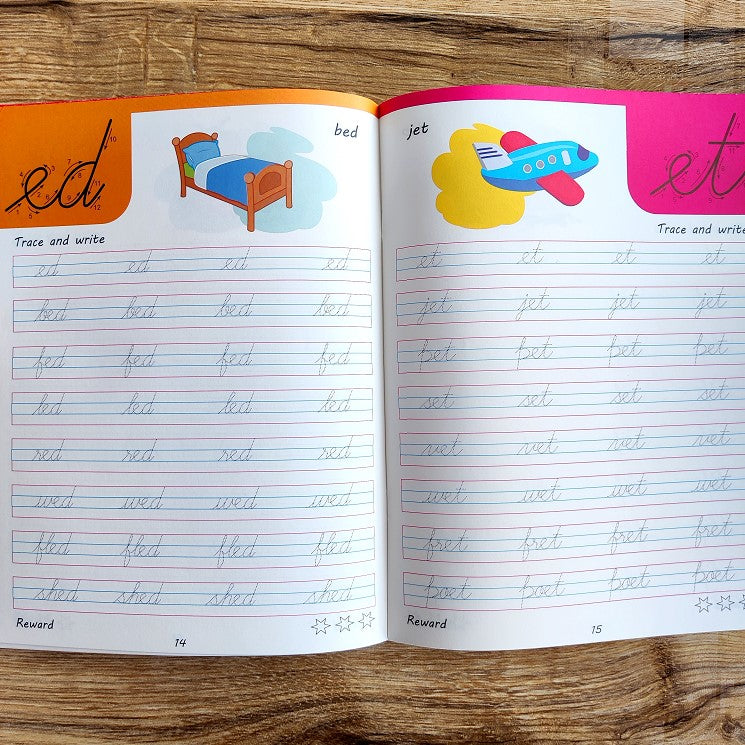 ed
bed
Trace and write
ed ed ed ed
bed bed bed bed
fed fed fed fed
led led led led
red red red red
wed wed wed wed
fled fled fled fled
shed shed shed shed
Reward
14
jet
et
Trace and write
et et et et
jet jet jet jet
pet pet pet pet
set set set set
vet vet vet vet
wet wet wet wet
fret fret fret fret
poet poet poet poet
Reward
15